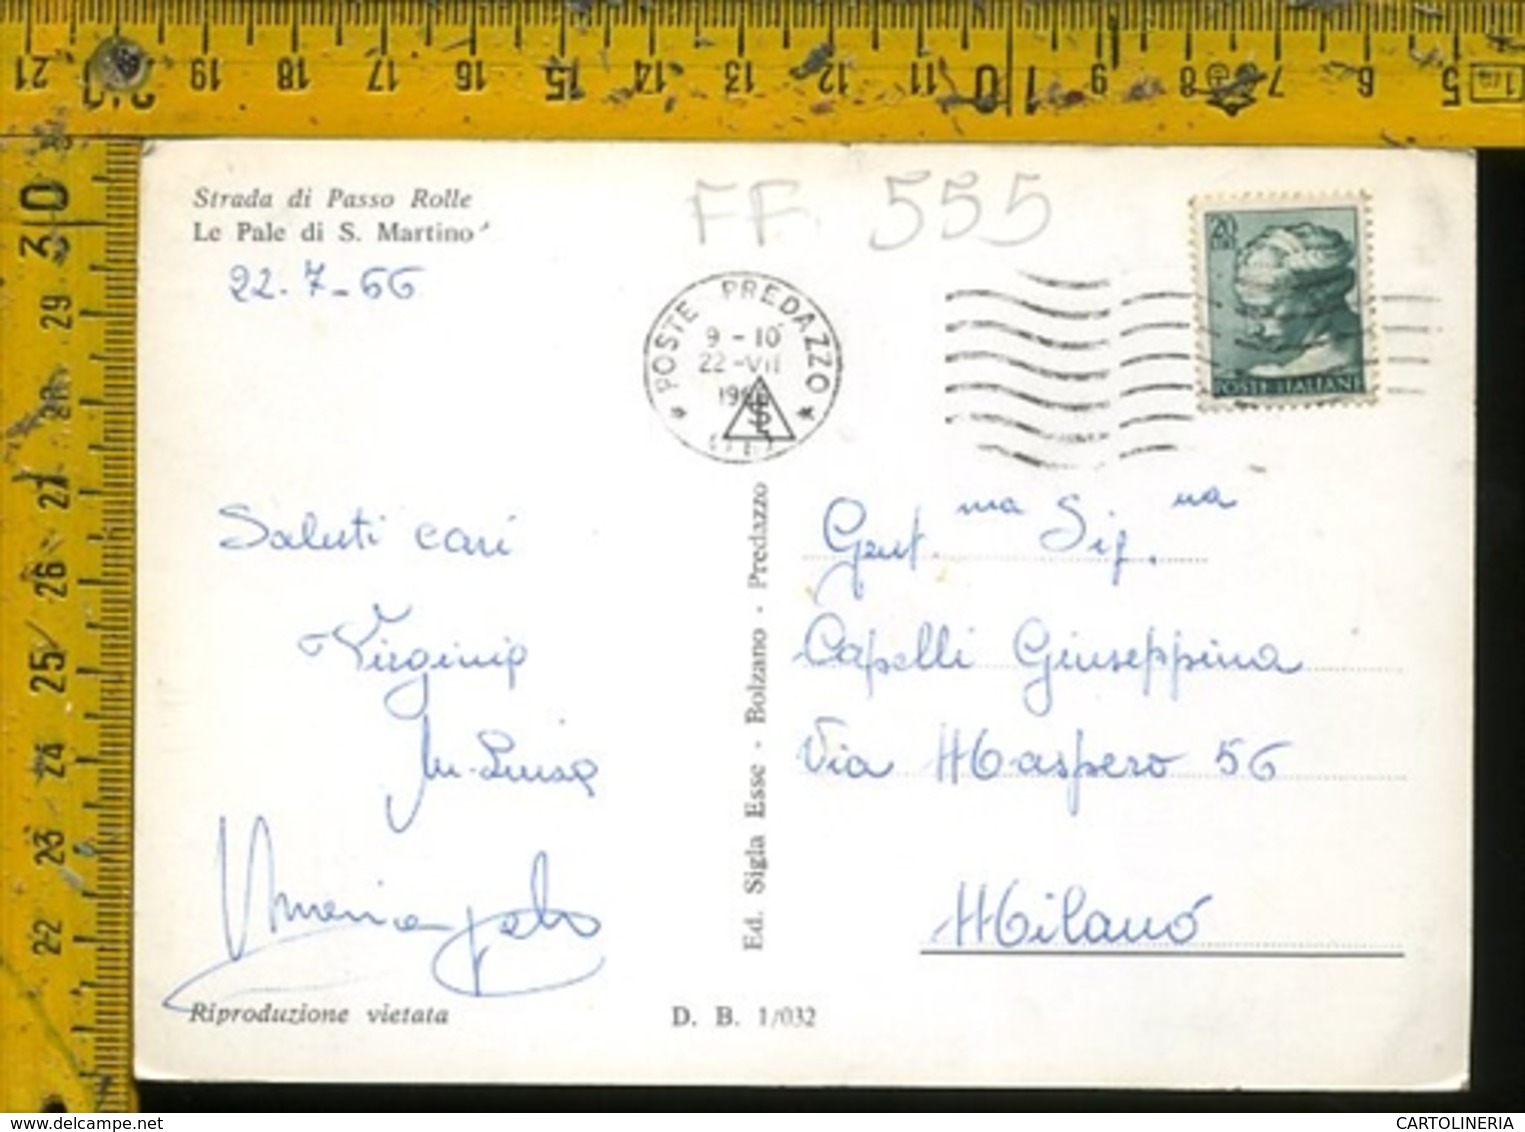 21 20 19 18 17 16 15 14 13 12 11 10 9 8 7 6 5
30 29 28 27 26 25 24 23 22
Strada di Passo Rolle
Le Pale di S. Martino
22-7-66
FF 555
POSTE PREDAZZO
9-10
22-VII
20 LIRE
POSTE ITALIANE
Saluti cari
Virginia
M. Luisa
Gent.ma Sig.na
Capelli Giuseppina
Via Maspero 56
Milano
Ed. Sigla Esse - Bolzano - Predazzo
Riproduzione vietata
D. B. 1/032
delcampe.net
CARTOLINERIA